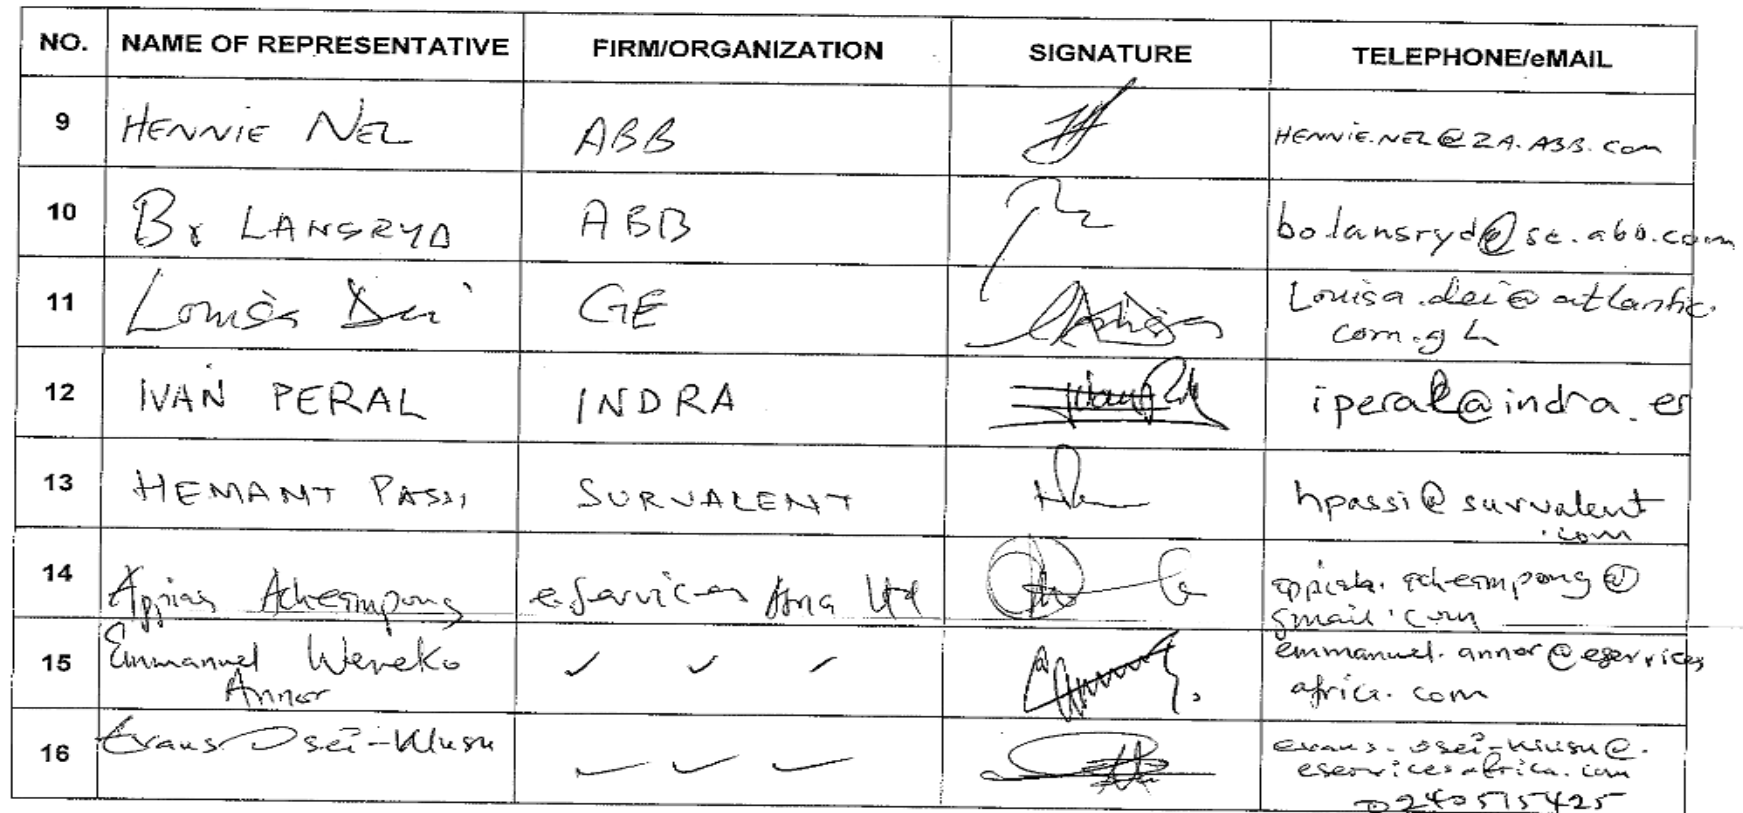 NO. NAME OF REPRESENTATIVE FIRM/ORGANIZATION SIGNATURE TELEPHONE/eMAIL
9 HENNIE NEL ABB HENNIE.NEL@ZA.ABB.com
10 Bo LANSRYD ABB bo.lansryd@se.abb.com
11 Louisa Dei GE Louisa.dei@atlantic.
com.gh
12 IVAN PERAL INDRA iperal@indra.es
13 HEMANT PASSI SURVALENT hpassi@survalent
.com
14 Appiah Acheampong eServices Ltd appiah.acheampong@
gmail.com
15 Emmanuel Wereko ✓ ✓ ✓ emmanuel.annor@eservices
Annor africa.com
16 Evans Osei- ✓ ✓ ✓ evans.osei-
eservicesafrica.com
0240515425